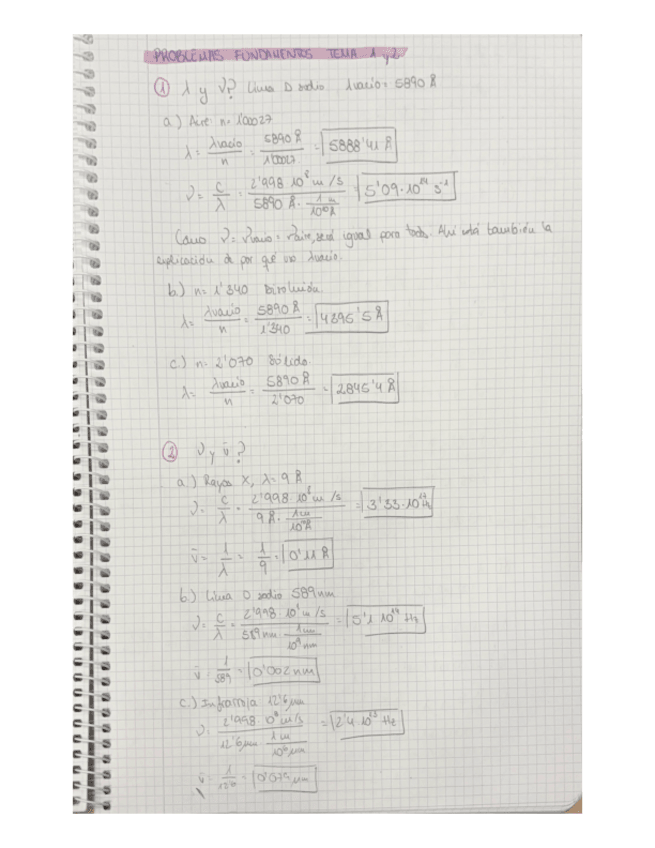 PROBLEMAS FUNDAMENTOS TEMA 1 y 2
① λ y ν? Línea D sodio λvacío = 5890 Å
a) Aire n = 1'00027
λ = λvacío / n = 5890 Å / 1'00027 = 5888'41 Å
ν = c / λ = 2'998 10⁸ m/s / 5890 Å · 1 m / 10¹⁰ Å = 5'09·10¹⁴ s⁻¹
Como ν = νvacío = νaire, será igual para todo. Ahí está también la
explicación de por qué uso λvacío.
b) n = 1'340 Disolución.
λ = λvacío / n = 5890 Å / 1'340 = 4395'5 Å
c) n = 2'070 Sólido.
λ = λvacío / n = 5890 Å / 2'070 = 2845'4 Å
② ν y ν̄?
a) Rayos X, λ = 9 Å
ν = c / λ = 2'998·10⁸ m/s / 9 Å · 1 m / 10¹⁰ Å = 3'33·10¹⁷ Hz
ν̄ = 1 / λ = 1 / 9 = 0'11 Å
b) Línea D sodio 589 nm
ν = c / λ = 2'998 · 10⁸ m/s / 589 nm · 1 m / 10⁹ nm = 5'1 10¹⁴ Hz
ν̄ = 1 / 589 = 0'002 nm
c) Infrarroja 12'6 μm
ν = 2'998 10⁸ m/s / 12'6 μm · 1 m / 10⁶ μm = 2'4·10¹³ Hz
ν̄ = 1 / 12'6 = 0'079 μm